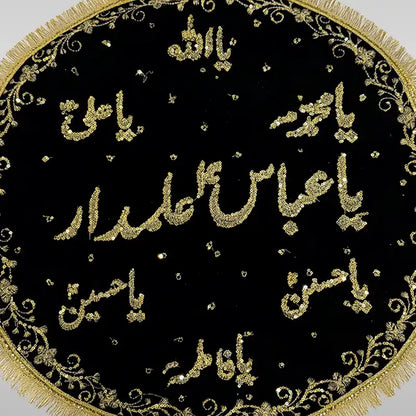 یا الله
یا محمد
یا علی
یا عباس علمدار
یا حسن
یا حسین
یا فاطمه